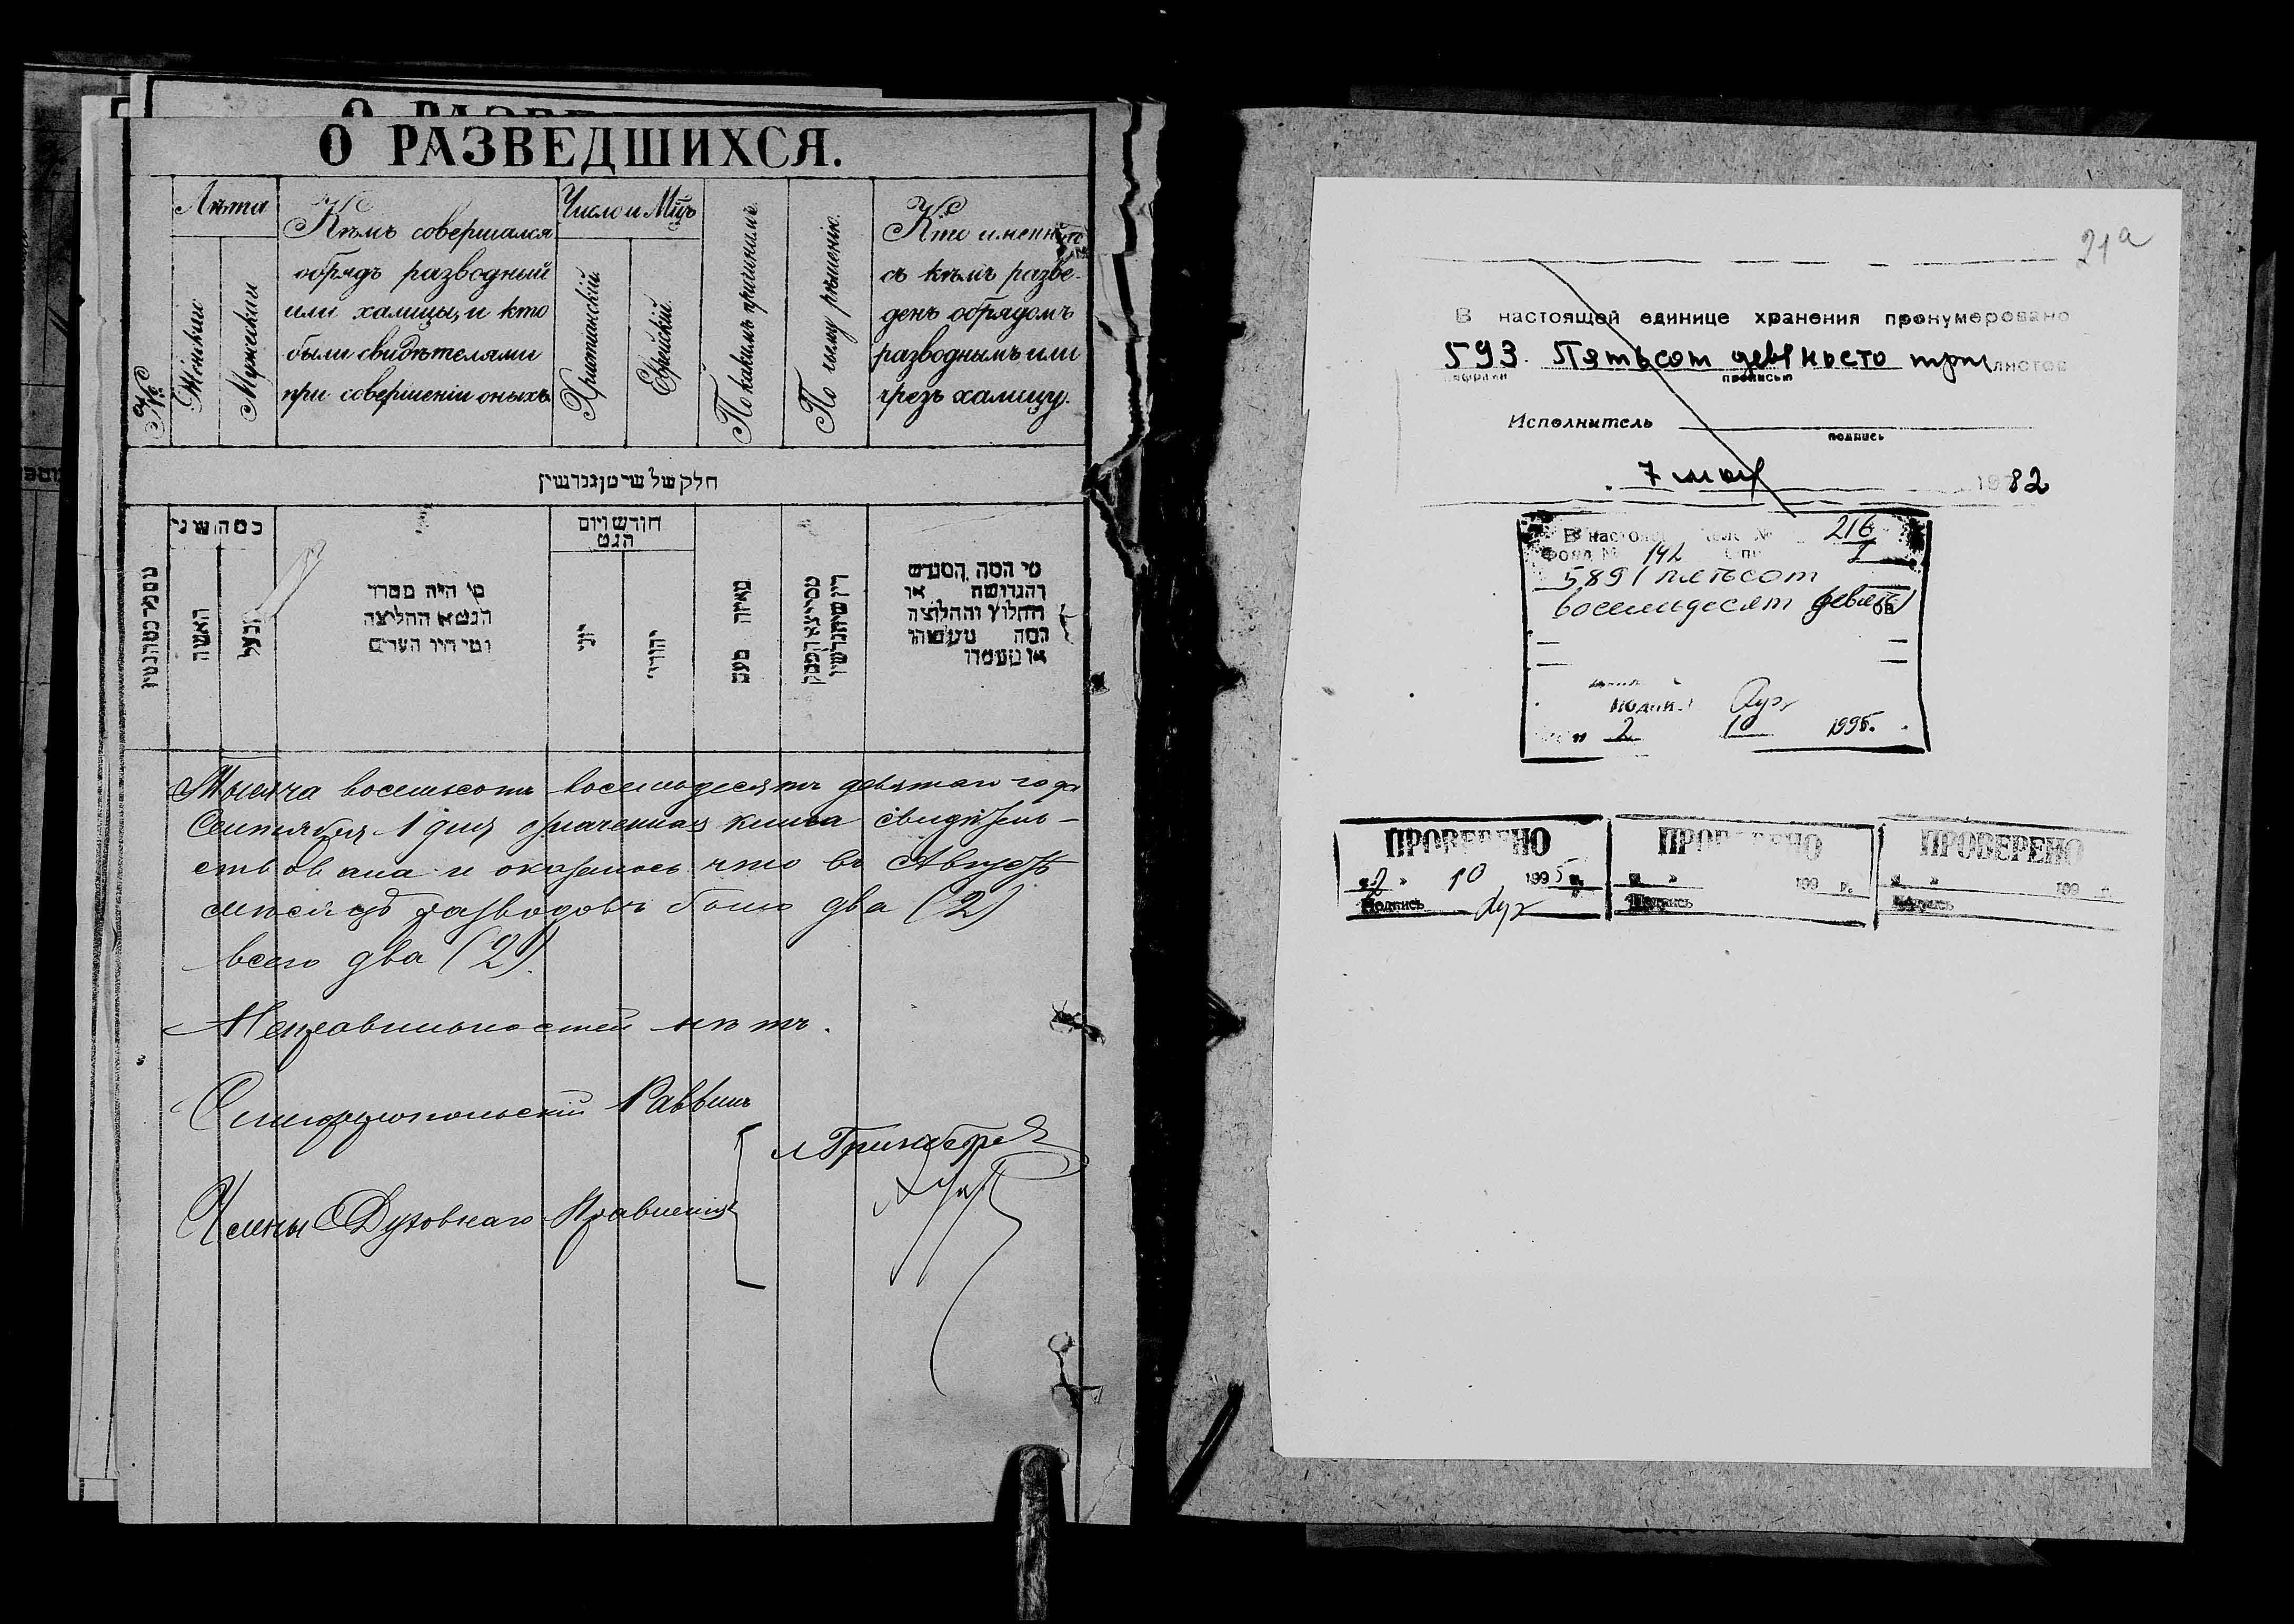 О РАЗВЕДШИХСЯ.
№
Лѣта
Женскія
Мужескія
Кѣмъ совершался
обрядъ разводный
или халицы, и кто
были свидѣтелями
при совершеніи оныхъ.
Число и Мцъ
Христіанскій
Еврейскій.
По какимъ причинамъ.
По чьему рѣшенію.
Кто именно
съ кѣмъ разве-
денъ обрядомъ
разводнымъ или
чрезъ халицу.
כמה שני
האשה
הבעל
מי היה מסדר
הגט או החליצה
ומי היו העדים
חודש ויום
הגט
יהודי
מאיזה טעם
מי המה המגרש
והגרושה או
החלוץ והחלוצה
או מעמדו
Тысяча восемьсотъ восемьдесятъ девятаго года
Сентября 1 дня означенная книга свидѣтель-
ствована и оказалось что въ Августѣ
мѣсяцѣ разводовъ было два (2)
всего два (2).
Неправильностей нѣтъ.
Симферопольскій Раввинъ
Члены Духовнаго Правленія
21а
В настоящей единице хранения пронумеровано
593. Пятьсот девяносто три листов
цифрами прописью
Исполнитель
подпись
7 мая 1982
В настоя 216
Фонд № 142 1
589 (пятьсот
восемьдесят девять)
2 10 1995.
ПРОВЕРЕНО
«2» 10 1995 г.
Подпись
ПРОВЕРЕНО
« » 199 г.
Подпись
ПРОВЕРЕНО
« » 199 г.
Подпись